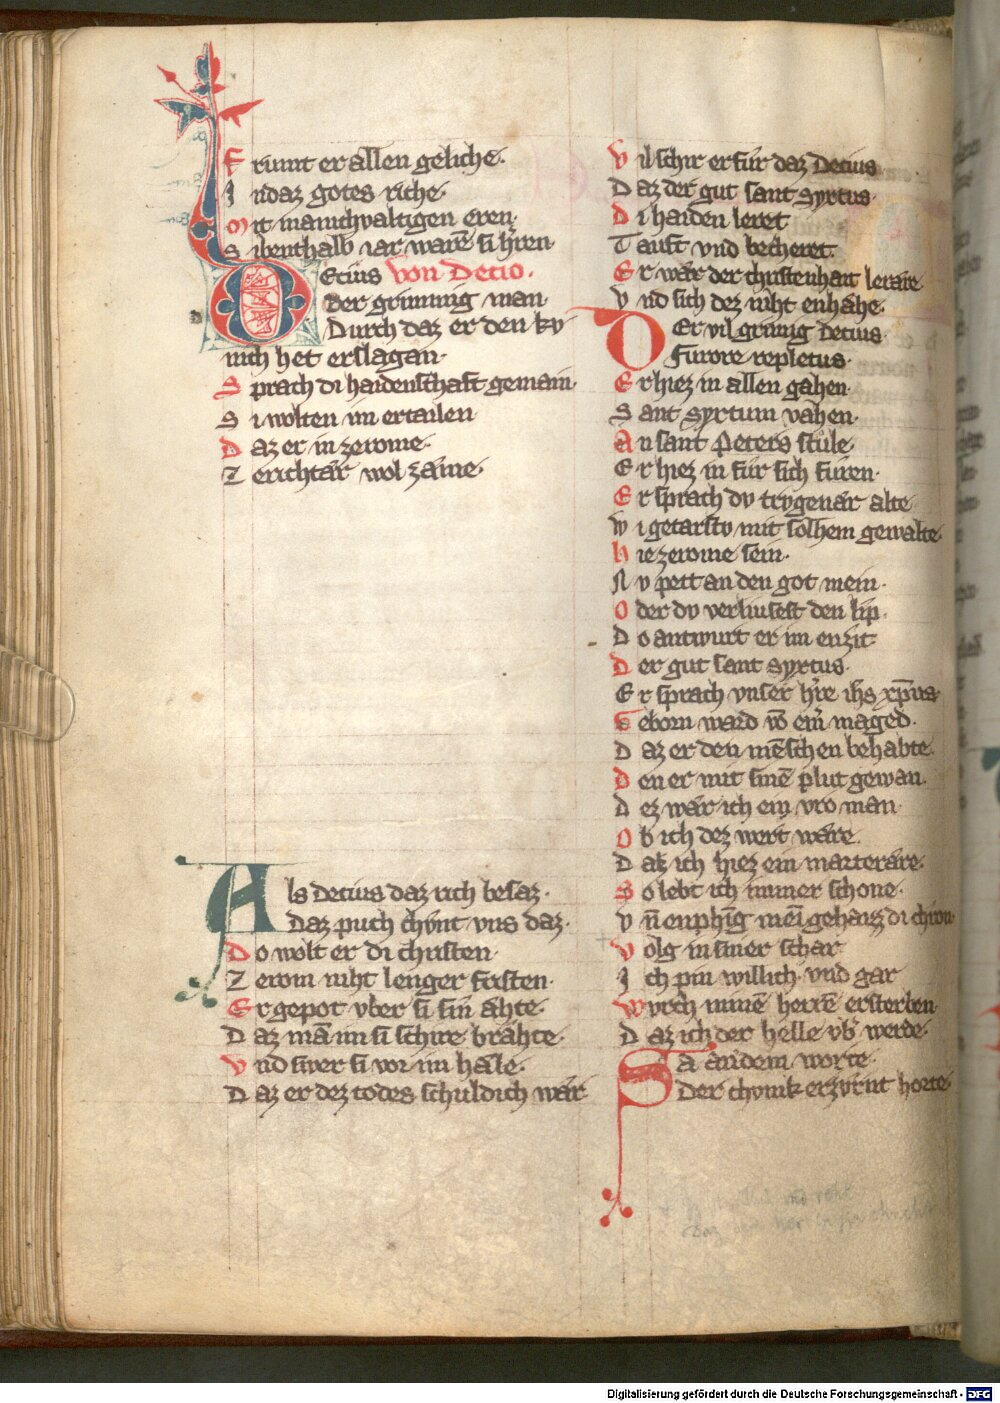 E rumt er allen geliche·
I n daz gotes riche·
M it manichvaltigen eren·
S ibenthalb iar warē si h̄ren·
DEcius von Decio·
Der grimmig man·
Durch daz er den kv
nich het erslagan·
S prach di haidenschaft gemain·
S i wolten im ertailen
D az er in ze rome·
Z e richtar wol zäme·
Als Decius daz rich besaz·
Daz puch chvnt vns daz·
D o wolt er di christen·
Z e rom niht lenger fristen·
E r gepot vber si sin ahte·
D az mā im si schire brahte·
V nd swer si vor im hale·
D az er dez todes schuldich wär
V il schir er für daz Decius
D az der gut sant Syxtus·
D i haiden leret
T auft vnd becheret·
E r wär der christenhait lerare
V nd sich dez niht enhahe·
DEr vil grimig Decius·
Furore repletus·
E r hiez in allen gahen·
S ant Syxtum vahen·
A n sant Peters stůle
E r hiez in für sich füren·
E r sprach dv trygenär alte
W i getarstv mit solhem gewalte·
h ie ze rome sein·
N v pett an den got mein·
O der dv verliusest den lip·
D o antwurt er im enzit
D er gut sant Syxtus·
E r sprach vnser h̄re ih̄s xp̄us
G eborn ward vō ein̄ maged·
D az er den mēschen behabte·
D en er mit sinē plut gewan·
D ez wär ich ein vro man·
O b ich dez wert wäre·
D az ich hiez ein marteräre·
S o lebt ich immer schone·
V n̄ enphīg mei gehaizz di chron·
V olg in siner schar
I ch pin willich vnd gar
W vrch minē herrē ersterben·
D az ich der helle vb̄ werde·
Sa an dem worte·
Der chvnik erzvrnt horte·
Digitalisierung gefördert durch die Deutsche Forschungsgemeinschaft - DFG